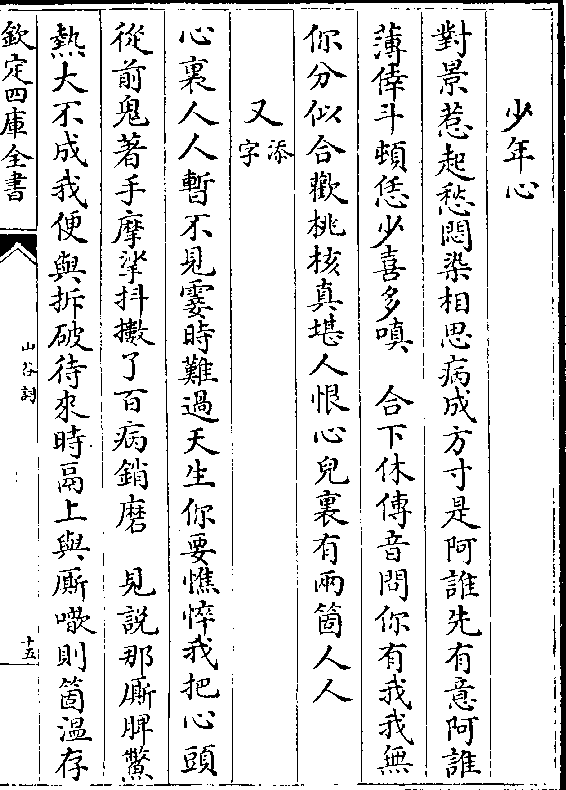 少年心
對景惹起愁悶染相思病成方寸是阿誰先有意阿誰
薄倖斗頓恁少喜多嗔　合下休傳音問你有我我無
你分似合歡桃核真堪人恨心兒裏有兩箇人人
又添字
心裏人人暫不見霎時難過天生你要憔悴我把心頭
從前鬼著手摩挲抖擻了百病銷磨　見說那厮脾鱉
熱大不成我便與拆破待來時鬲上與厮噷則箇溫存
欽定四庫全書
山谷詞
十五